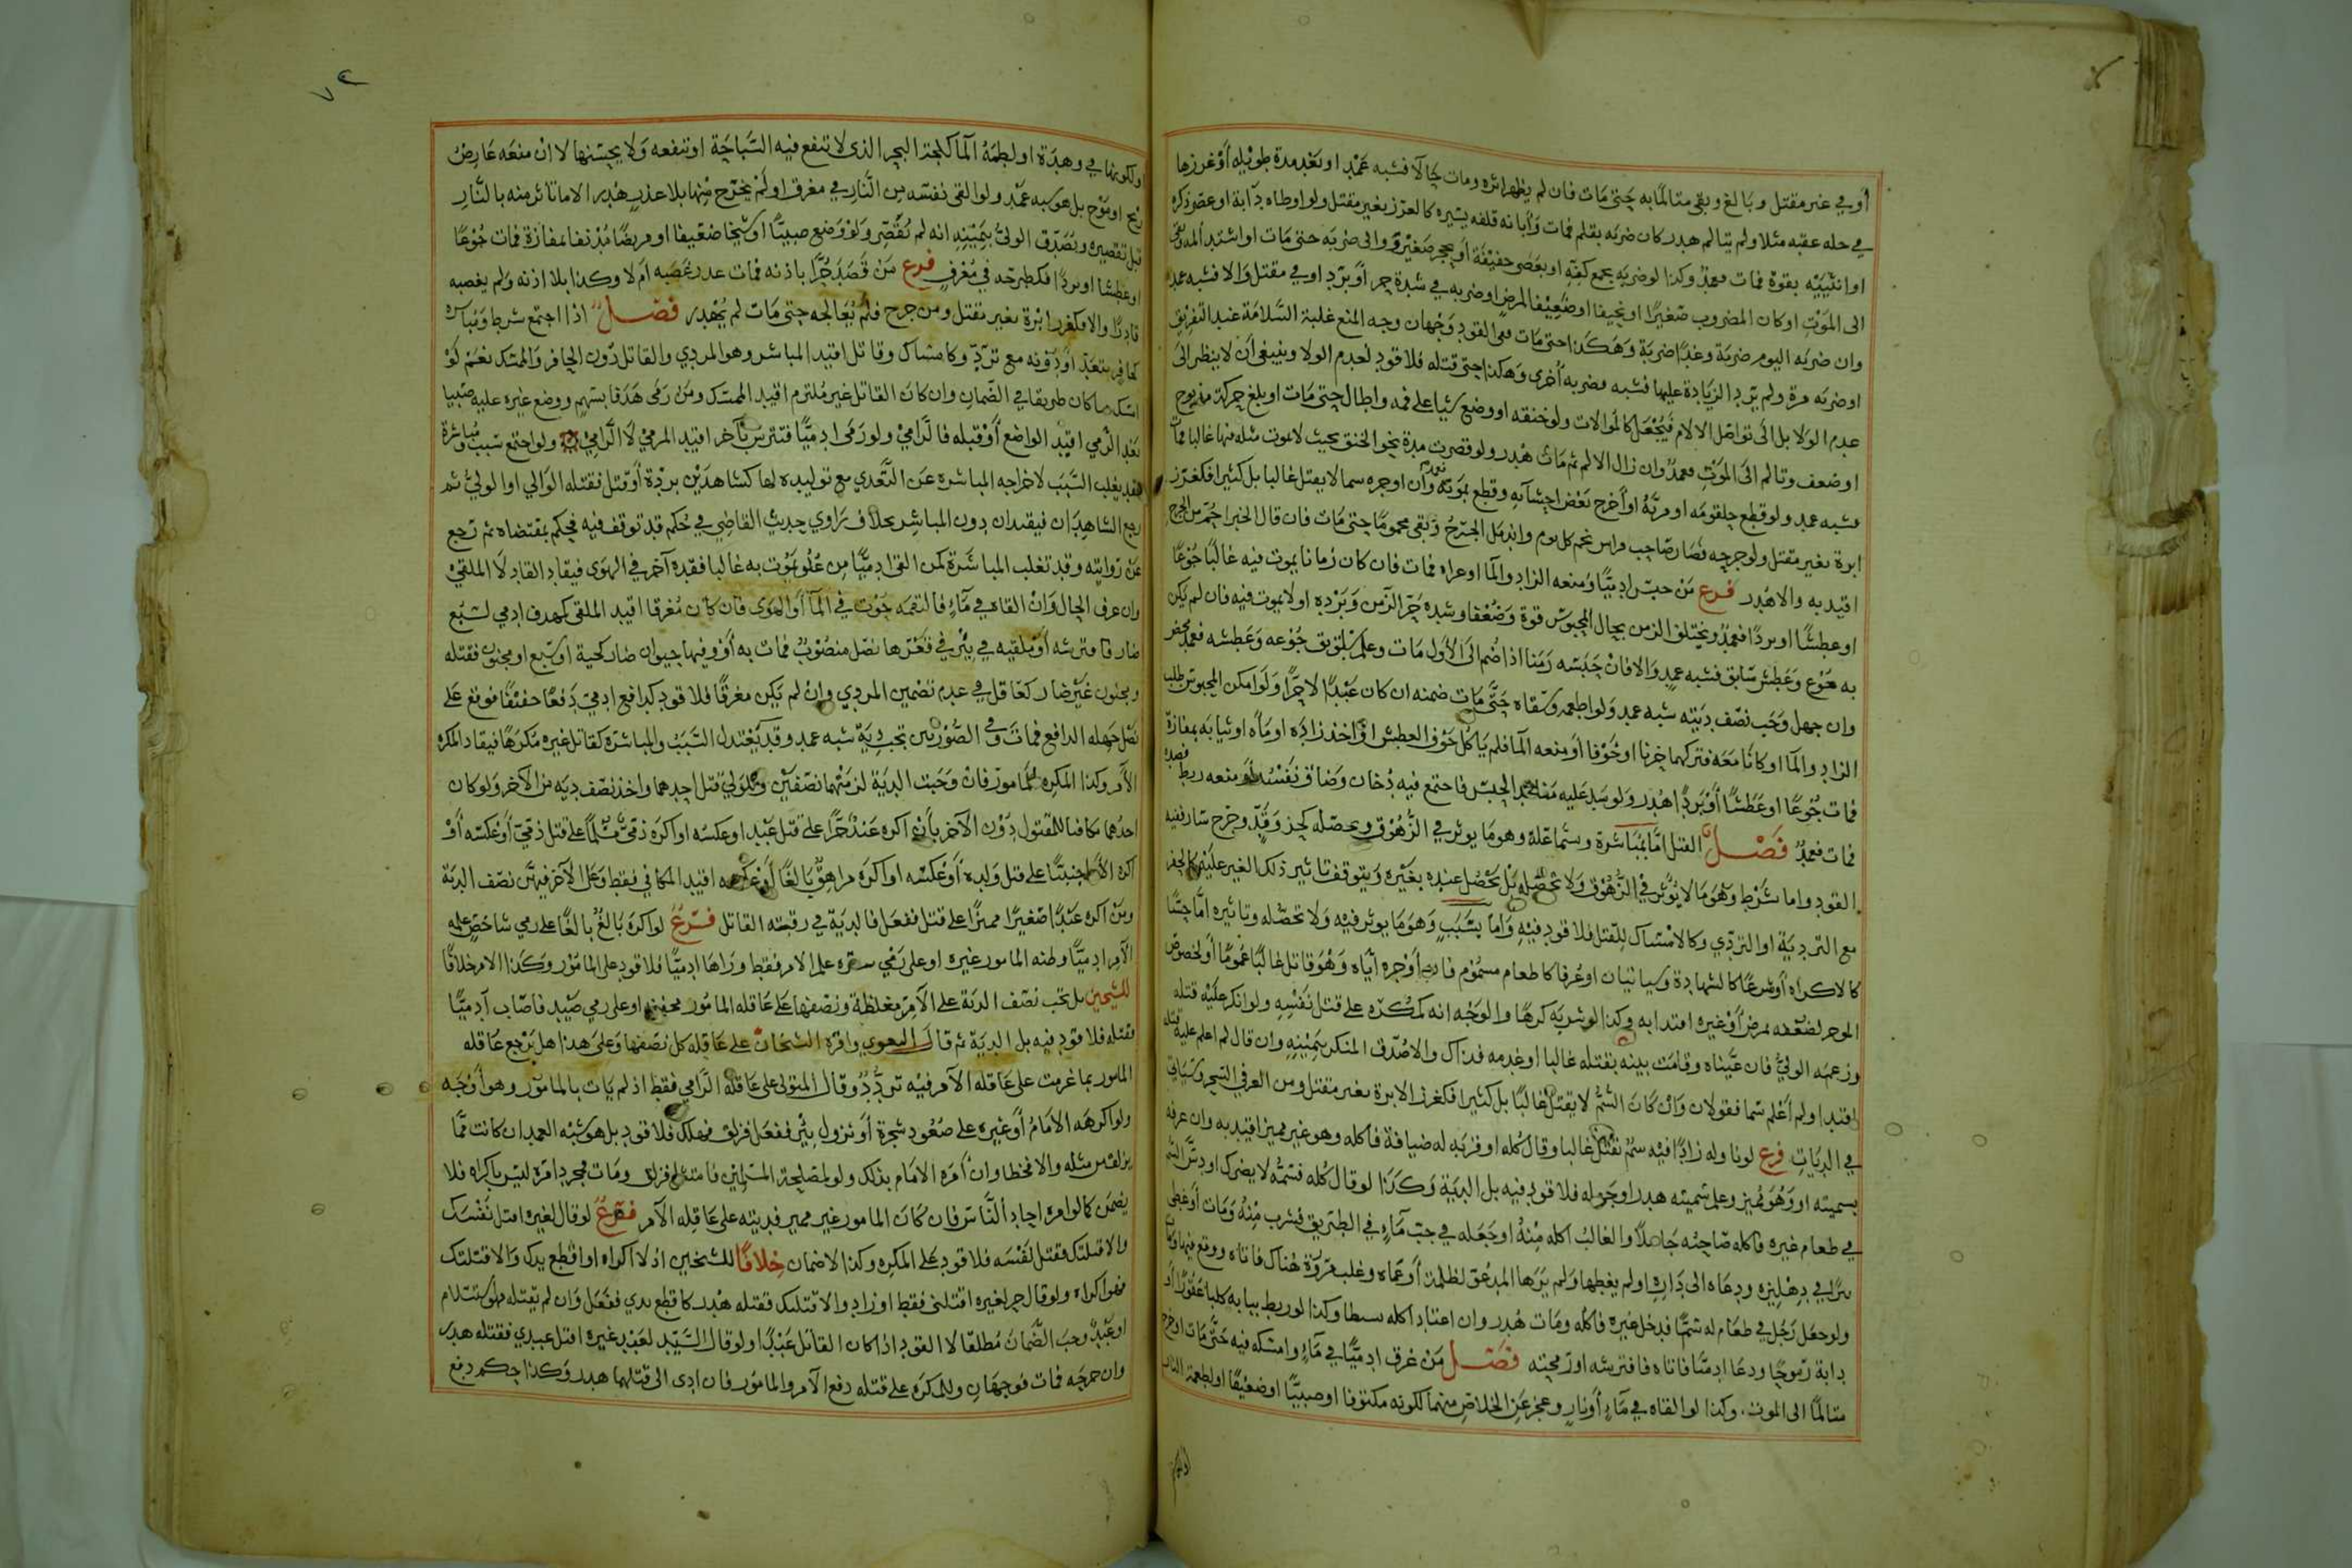 أو في غير مقتل وبالغ وبقى متالمابه حتى مات فان لم يظهر اثره ومات حالا فشبه عمد او بعد مدة طويلة أو غرزها
في جله عقبه مثلا ولم يتالم هدر كان ضربه بقلم فمات وابانه قلفه يسيره كالغرز بغير مقتل ولو اوطاه دابة او عصر ذكره
او انثييه بقوة فمات فعمد وكذا لو ضربه بجمع كفه او بعصى خفيفة أو بحجر صغير ووالى ضربه حتى مات او اشتد المه وبقى
الى الموت او كان المضروب صغيرا او نحيفا او ضعيفا لمرض او ضربه في شدة حر أو برد او في مقتل والا فشبه عمد
وان ضربه اليوم ضربة وغدا ضربة وهكذا حتى مات ففي القود وجهان وجه المنع غلبة السلامة عند التفريق
او ضربه مرة ولم يرد الزيادة عليها فشبه فضربه أخرى وهكذا حتى قتله فلا قود لعدم الولا وينبغى أن لا ينظر الى
عدم الولا بل الى تواصل الالام فيجعل كالموالات ولو خنقه او وضع شيا على فمه واطال حتى مات او بلغ حركة مذبوح
او ضعف وتالم الى الموت فعمد وان زال الالم ثم مات هدر ولو قصرت مدة نحو الخنق بحيث لا يموت مثله منها غالبا فمات
فشبه عمد ولو قطع حلقومه او مريه او أخرج بعض احشائه وقطع بموته وان اوجره سما لا يقتل غالبا بل كثيرا فكغرز
ابرة بغير مقتل ولو جرحه فصار صاحب فراش نحم كل يوم واندمل الجرح وبقى محموما حتى مات فان قال الخبرا حم من الجرح
اقيد به والا هدر فرع من حبس ادميا ومنعه الزاد والما او عراه فمات فان كان زمانا يموت فيه غالبا جوعا
او عطشا او بردا فعمد ويختلف الزمن بحال المحبوس قوة وضعفا وشدة حر الزمن وبرده او لا يموت فيه فان لم يكن
به جوع وعطش سابق فشبه عمد والا فان حبسه زمنا اذا ضم الى الأول مات وعلم سابق جوعه وعطشه فعمد محض
وان جهل وجب نصف ديته شبه عمد ولو اطعمه وسقاه حتى مات ضمنه ان كان عبدا لا حرا ولو امكن المحبوس طلب
الزاد والما او كانا معه فتركهما حزنا او خوفا أو منعه الما فلم ياكل خوف العطش او اخذ زاده او ماه او ثيابه بمفازة
فمات جوعا او عطشا أو بردا هدر ولو سد عليه منافذ الحبس فاجتمع فيه دخان وضاق نفسه او منعه ربط فصد
فمات فعمد فصل القتل اما بمباشرة وسما علة وهو ما يوثر في الزهوق ويحصله كحز وقد وجرح سار ففيه
القود واما شرط وهو ما لا يوثر في الزهوق ولا يحصله بل يحصل عنده بغيره ويتوقف تاثير ذلك الغير عليه كالحفر
مع التردية او التردي وكالامساك للقتل فلا قود فيه واما بسبب وهو ما يوثر فيه ولا تحصله وتاثيره اما حسا
كالاكراه أو شرعا كالشهادة وسياتيان او عرفا كاطعام مسموم فاذا أوجره اياه وهو قاتل غالبا عموما أو لخصوص
الموجر لضعفه بمرض أو غيره اقتد به وكذا لو شربه كرها والوجه انه كمكره على قتل نفسه ولو انكر عليه قتله
وزعمه الولى فان عيناه وقامت بينه بقتله غالبا او عدمه فذاك والا صدق المنكر بيمينه وان قال لم اعلم عليه قتله
اقتد او لم أعلم سما فقولان وان كان السم لا يقتل غالبا بل كثيرا فكغرز الابرة بغير مقتل ومن العرفي السحر وسياتى
في الديات فرع لو ناوله زادا فيه سم يقتل غالبا وقال كله او قربه له ضيافة فاكله وهو غير مميز اقيد به وان عرفه
بسميته او وهو مميز وعلم سميته هدر او جهله فلا قود فيه بل الدية وكذا لو قال كله فسمه لا يضرك او دس السم
في طعام غيره فاكله صاحبه جاهلا والغالب اكله منه او جعله في جب ماء في الطريق فشرب منه ومات أو غطى
بئرا في دهليزه ودعاه الى داره او لم يغطها ولم يرها المدعو لظلمة أو عماه وغلب مروره هناك فاتاه ووقع فيها وكان
ولو جعل رجل في طعام له سما فدخل غيره فاكله ومات هدر وان اعتاد اكله سطا وكذا لو ربط ببابه كلبا عقورا أو
دابة رموحا ودعا ادميا فاتاه فافترسه او رمحته فصل من غرق ادميا في ماء وامسكه فيه حتى مات او خرج
متالما الى الموت وكذا لو القاه في ماء أو نار وعجز عن الخلاص منهما لكونه مكتوفا او صبيا او ضعيفا او لطمة النار
ولكونها في وهدة او لطمة الما كلجة البحر الذى لا تنفع فيه السباحة او تنفعه ولا يحسنها لا ان منعه عارض
ريح او موج بل هو شبه عمد ولو القى نفسه من النار في مغرق او لم يخرج منها بلا عذر هدر الا ما تاثر منه بالنار
قبل تقصيره ويصدق الولى بيمينه انه لم يقصر ولو وضع صبيا او شيخا ضعيفا او مريضا مدنفا بمفازة فمات جوعا
او عطشا او بردا فكطرحه في مغرق فرع من قصد حرا باذنه فمات عدر غصبه ام لا وكذا بلا اذنه ولم يغصبه
قادرا والا فكغرز ابرة بغير مقتل ومن جرح فلم يعالجه حتى مات لم يهدر فصل اذا اجتمع شرط ومباشره
كحافر بتعد او دونه مع ترد وكامساك وقاتل اقيد المباشر وهو المردي والقاتل دون الحافر والممسك نعم لو
امسك ما كان طريقا في الضمان وان كان القاتل غير ملتزم اقيد الممسك ومن رمى هدفا بسهم ووضع غيره عليه صبيا
بعد الرمي اقيد الواضع أو قبله فالرامي ولو رمى ادميا فتترس بآخر اقيد المرمي لا الرامي ولو اجتمع سبب ومباشرة
فقد يغلب السبب لاخراجه المباشرة عن التعدي مع توليده لها كشاهدين بردة أو قتل فقتله الوالي او الولي ثم
رجع الشاهدان فيقيدان دون المباشر بخلاف راوي حديث القاضي في حكم قد توقف فيه فحكم بمقتضاه ثم رجع
عن روايته وقد تغلب المباشرة كمن القى ادميا من علو يموت به غالبا فقده آخر في الهوى فيقاد القاد لا الملقي
وان عرف الحال وان القاه في ماء فالتقمه حوت في الما أو الهوى فان كان مغرقا اقيد الملقى كهدف ادمي لسبع
ضار فافترسه أو ملقيه في بئر في قعرها نصل منصوب فمات به أو وفيها حيوان ضار كحية او سبع او مجنون فقتله
ومجنون غير ضار كعاقل في عدم تضمين المردي وان لم يكن مغرقا فلا قود كدافع ادمي دفعا خفيفا فوقع على
نصل جهله الدافع فمات وفى الصورتين تجب دية شبه عمد وقد يعتدل السبب والمباشرة كقاتل غيره مكرها فيقاد المكره
الآمر وكذا المكره المأمور فان وجبت الدية لزمتهما نصفين وللولي قتل احدهما واخذ نصف ديه من الآخر ولو كان
احدهما مكافئا للمقتول دون الآخر بأن اكره عبد حرا على قتل عبد او عكسه او اكره ذمي مسلما على قتل ذمي أو عكسه أو
اكره الاب اجنبيا على قتل ولده أو عكسه او اكره مراهق بالغا أو عكسه اقيد المكافي فقط وعلى الآخر فيهن نصف الدية
ومن اكره عبدا صغيرا مميزا على قتل ففعل فالدية في رقبته القاتل فرع لو اكره بالغ بالغا على رمي شاخص علمه
الآمر ادميا وظنه المامور غيره او على رمي ستره علم الامر فقط وراها ادميا فلا قود على المامور وكذا الامر خلافا
للشيخين بل تجب نصف الدية على الآمر مغلظة ونصفها على عاقلة المامور مخففه او على رمي صيد فاصاب آدميا
فقتله فلا قود فيه بل الدية ثم قال البغوى واقره الشيخان على عاقلة كل نصفها وعلى هذا هل يرجع عاقلة
المامور بما غرمت على عاقلة الآمر فيه تردد وقال المتولى على عاقلة الرامي فقط اذ لم يات بالمامور وهو أوجه
ولو اكرهه الامام أو غيره على صعود شجرة أو نزول بئر ففعل فزلق فهلك فلا قود بل هو شبه العمد ان كانت مما
يزلق من مثله والا فخطا وان أمره الامام بذلك ولو لمصلحة المسلمين فامتثل فزلق ومات فمجرد امره ليس باكراه فلا
يضمن كما لو امره احاد الناس فان كان المامور غير مميز فديته على عاقلة الآمر فرع لو قال لغيره اقتل نفسك
والا قتلتك فقتل نفسه فلا قود على المكره وكذا لا ضمان خلافا للشيخين اذ لا اكراه او اقطع يدك والا قتلتك
فهو اكراه ولو قال حر لغيره اقتلنى فقط او زاد والا قتلتك فقتله هدر كاقطع يدي ففعل وان لم يقتله فهو استسلام
او عبد وجب الضمان مطلقا لا القود اذا كان القاتل عبدا او لو قال السيد لعبد غيره اقتل عبدي فقتله هدر
وان جرحه فمات فوجهان وللمكره على قتله دفع الآمر والمامور فان ادى الى قتلهما هدر وكذا حكم دفع